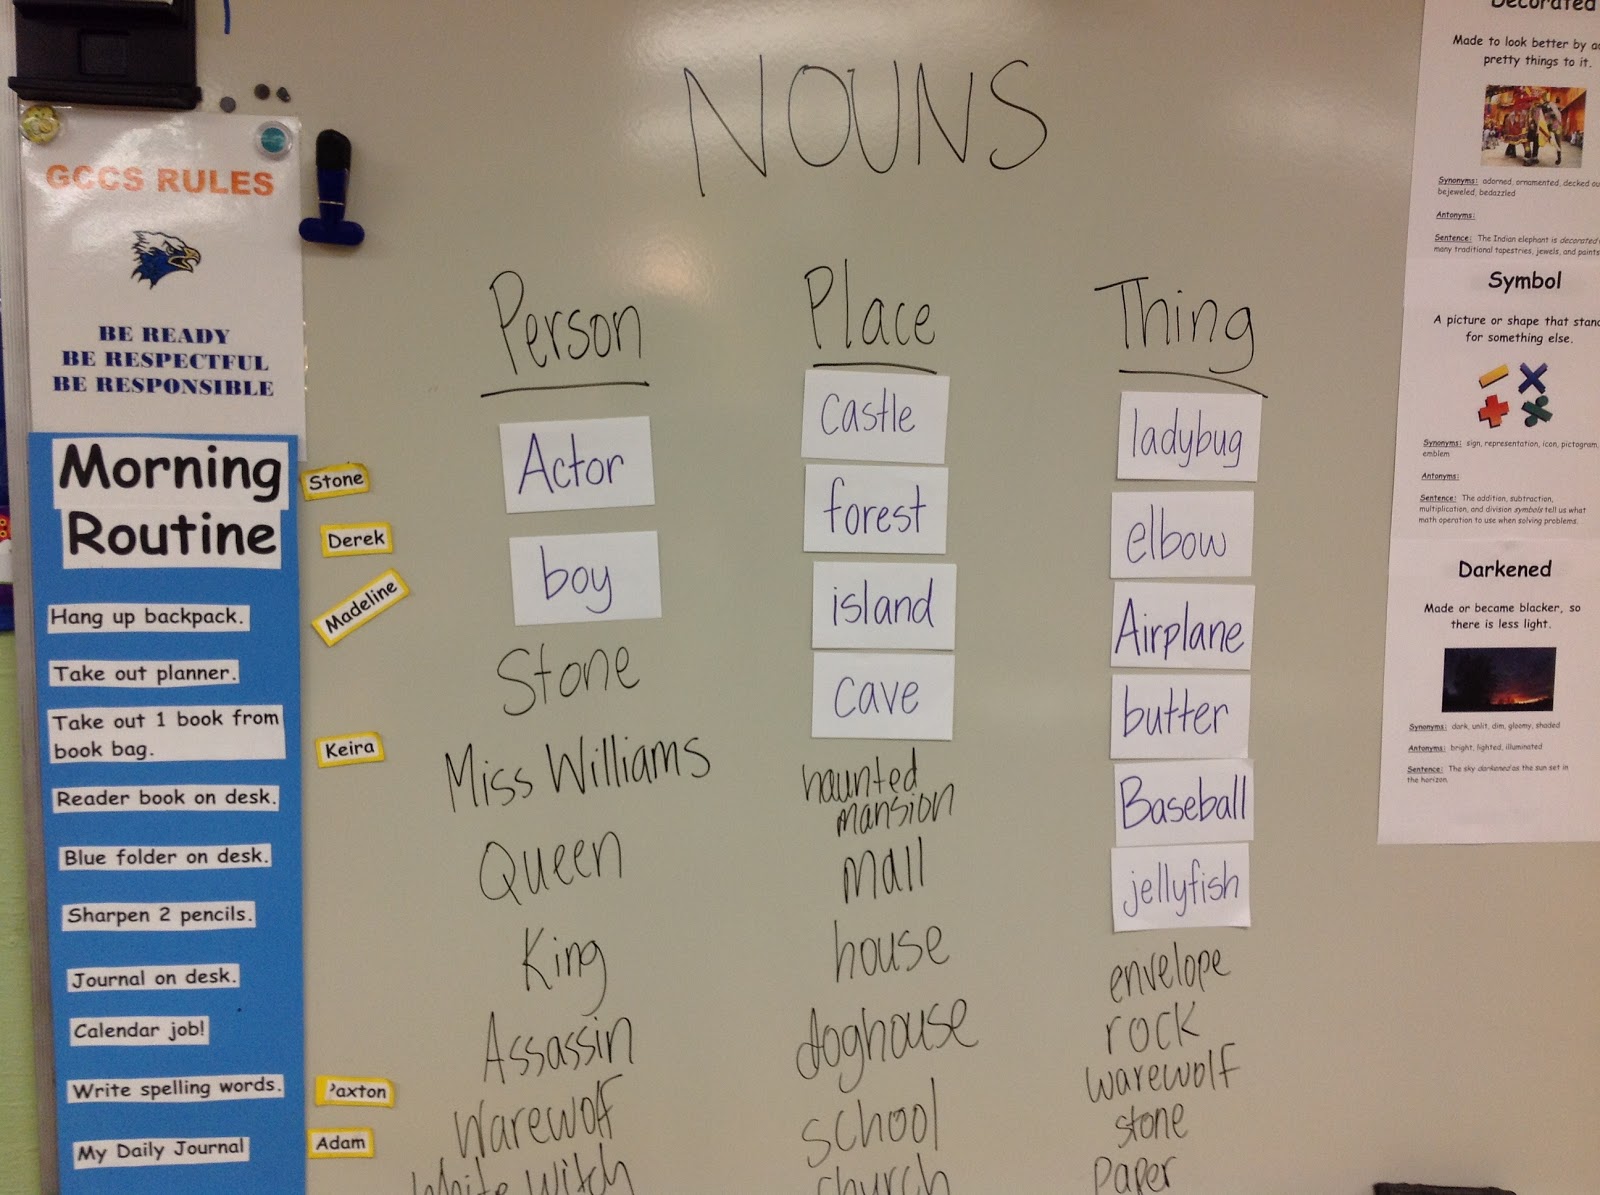 NOUNS
GCCS RULES
BE READY
BE RESPECTFUL
BE RESPONSIBLE
Morning
Routine
Hang up backpack.
Take out planner.
Take out 1 book from
book bag.
Reader book on desk.
Blue folder on desk.
Sharpen 2 pencils.
Journal on desk.
Calendar job!
Write spelling words.
My Daily Journal
Stone
Derek
Madeline
Keira
Paxton
Adam
Person
Actor
boy
Stone
Miss Williams
Queen
King
Assassin
Warewolf
White Witch
Place
castle
forest
island
cave
haunted
mansion
mall
house
doghouse
school
church
Thing
ladybug
elbow
Airplane
butter
Baseball
jellyfish
envelope
rock
warewolf
stone
paper
Decorated
Made to look better by
pretty things to it.
Synonyms: adorned, ornamented, decked
bejeweled, bedazzled
Antonyms:
Sentence: The Indian elephant is decorated
many traditional tapestries, jewels, and paints
Symbol
A picture or shape that stand
for something else.
Synonyms: sign, representation, icon, pictogram,
emblem
Antonyms:
Sentence: The addition, subtraction,
multiplication, and division symbols tell us what
math operation to use when solving problems.
Darkened
Made or became blacker, so
there is less light.
Synonyms: dark, unlit, dim, gloomy, shaded
Antonyms: bright, lighted, illuminated
Sentence: The sky darkened as the sun set in
the horizon.